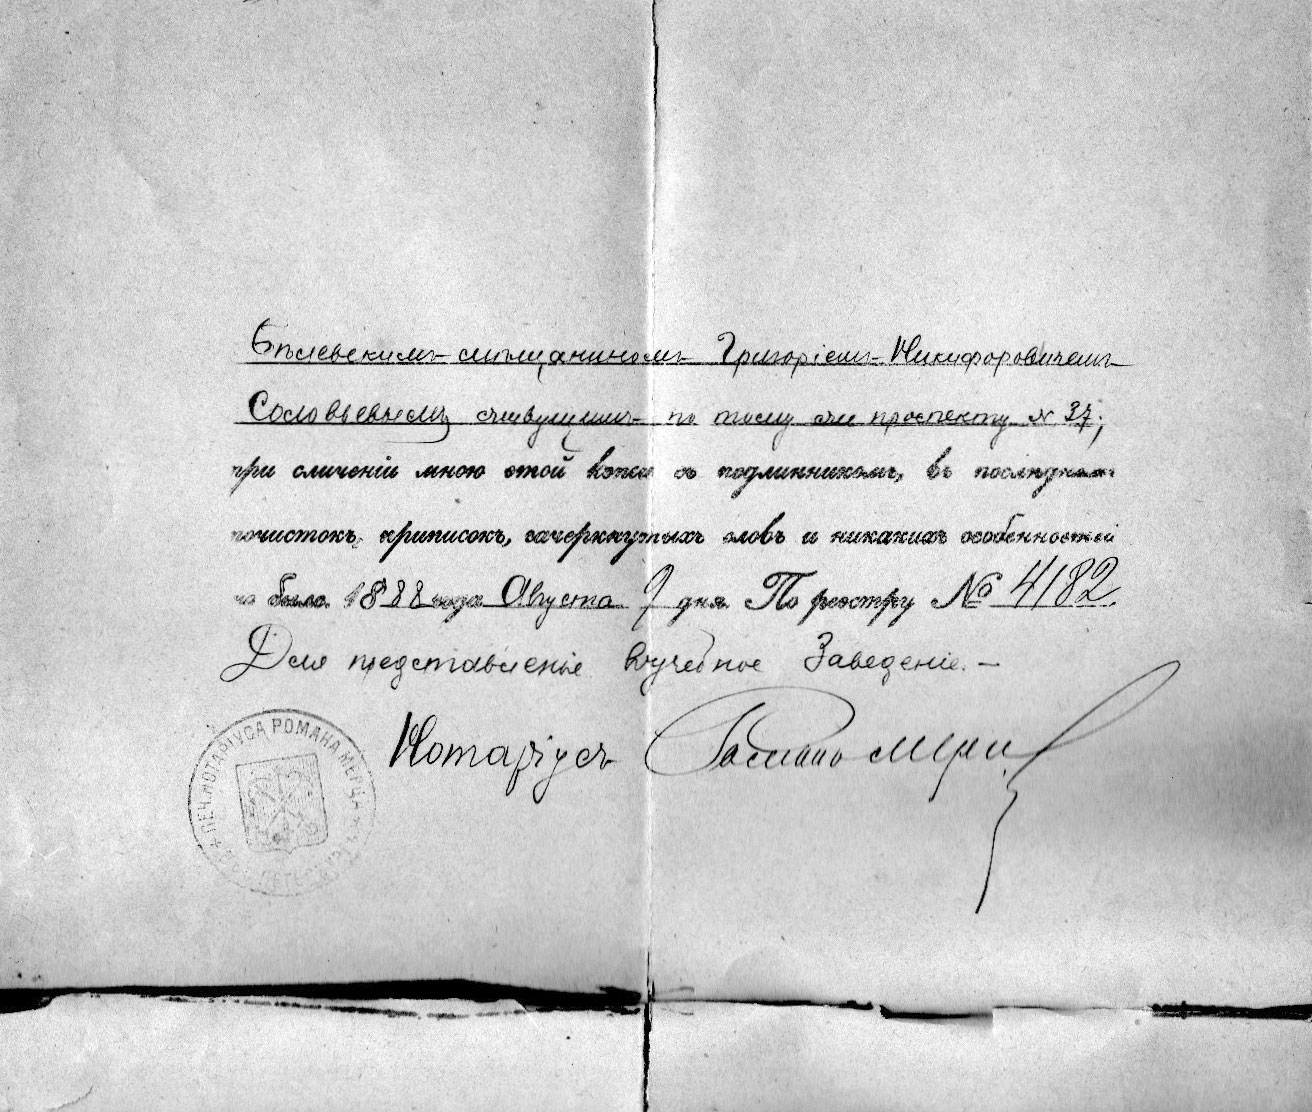 Бѣлевскимъ мѣщаниномъ Григоріемъ Никифоровичемъ
Соловьевымъ живущимъ по тому же проспекту № 37;
при сличеніи мною этой копіи съ подлинникомъ, въ послѣднемъ
почистокъ, приписокъ, зачеркнутыхъ словъ и никакихъ особенностей
не было 1888 года Августа 9 дня. По реэстру № 4182.
Для представленіе вᲂучебное Заведеніе. —
Нотаріусъ Романъ Мерц
ПЕЧ. НОТАРІУСА РОМАНА МЕРЦ